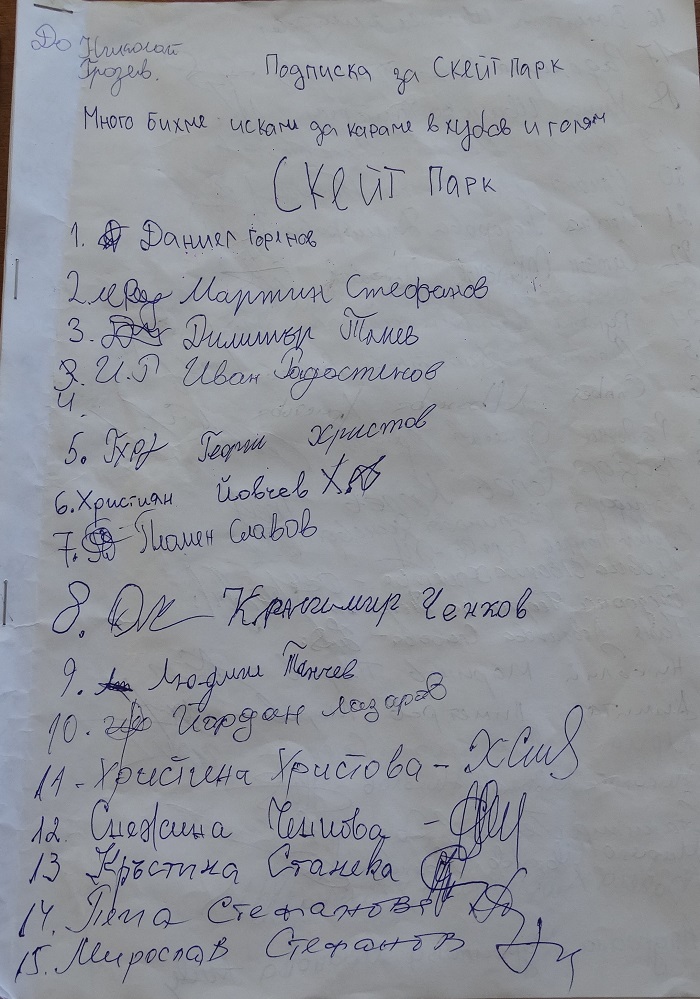 До Николай
Грозев.
Подписка за Скейт парк
Много бихме искали да караме в хубав и голям
Скейт парк
1. Даниел Горинов
2. Мартин Стефанов
3. Димитър Танев
3. И.Р Иван Радостинов
4.
5. Георги Христов
6. Християн Йовчев
7. Пламен Славов
8. Красимир Ченков
9. Людмил Танчев
10. Йордан Лазаров
11 - Христина Христова -
12. Снежина Ченкова -
13 Кръстина Станева
14. Пепа Стефанова
15. Мирослав Стефанов